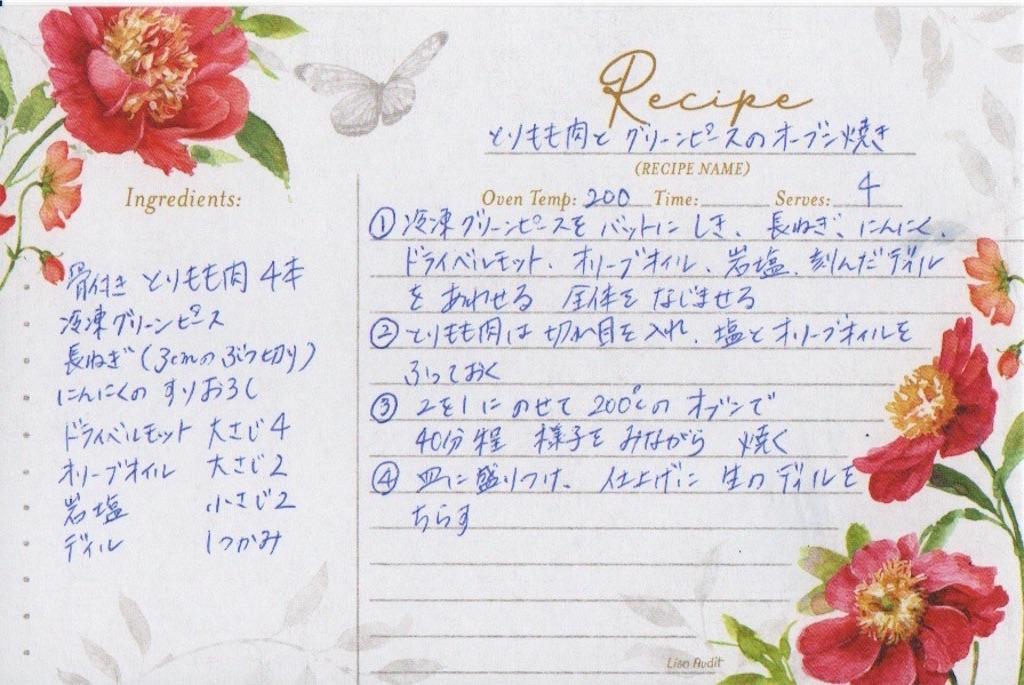 Recipe
とりもも肉と グリーンピースのオーブン焼き
(RECIPE NAME)
Oven Temp: 200 Time: Serves: 4
Ingredients:
骨付き とりもも肉 4本
冷凍グリーンピース
長ねぎ(3cmのぶつ切り)
にんにくの すりおろし
ドライベルモット 大さじ4
オリーブオイル 大さじ2
岩塩 小さじ2
ディル 1つかみ
① 冷凍グリーンピースを バットに しき、長ねぎ、にんにく、
ドライベルモット、オリーブオイル、岩塩、刻んだディル
を あわせる 全体を なじませる
② とりもも肉は 切れ目を入れ、塩とオリーブオイルを
ふっておく
③ 2を1に のせて 200℃の オブンで
40分程 様子を みながら 焼く
④ 皿に盛りつけ、仕上げに 生の ディルを
ちらす
Lisa Audit